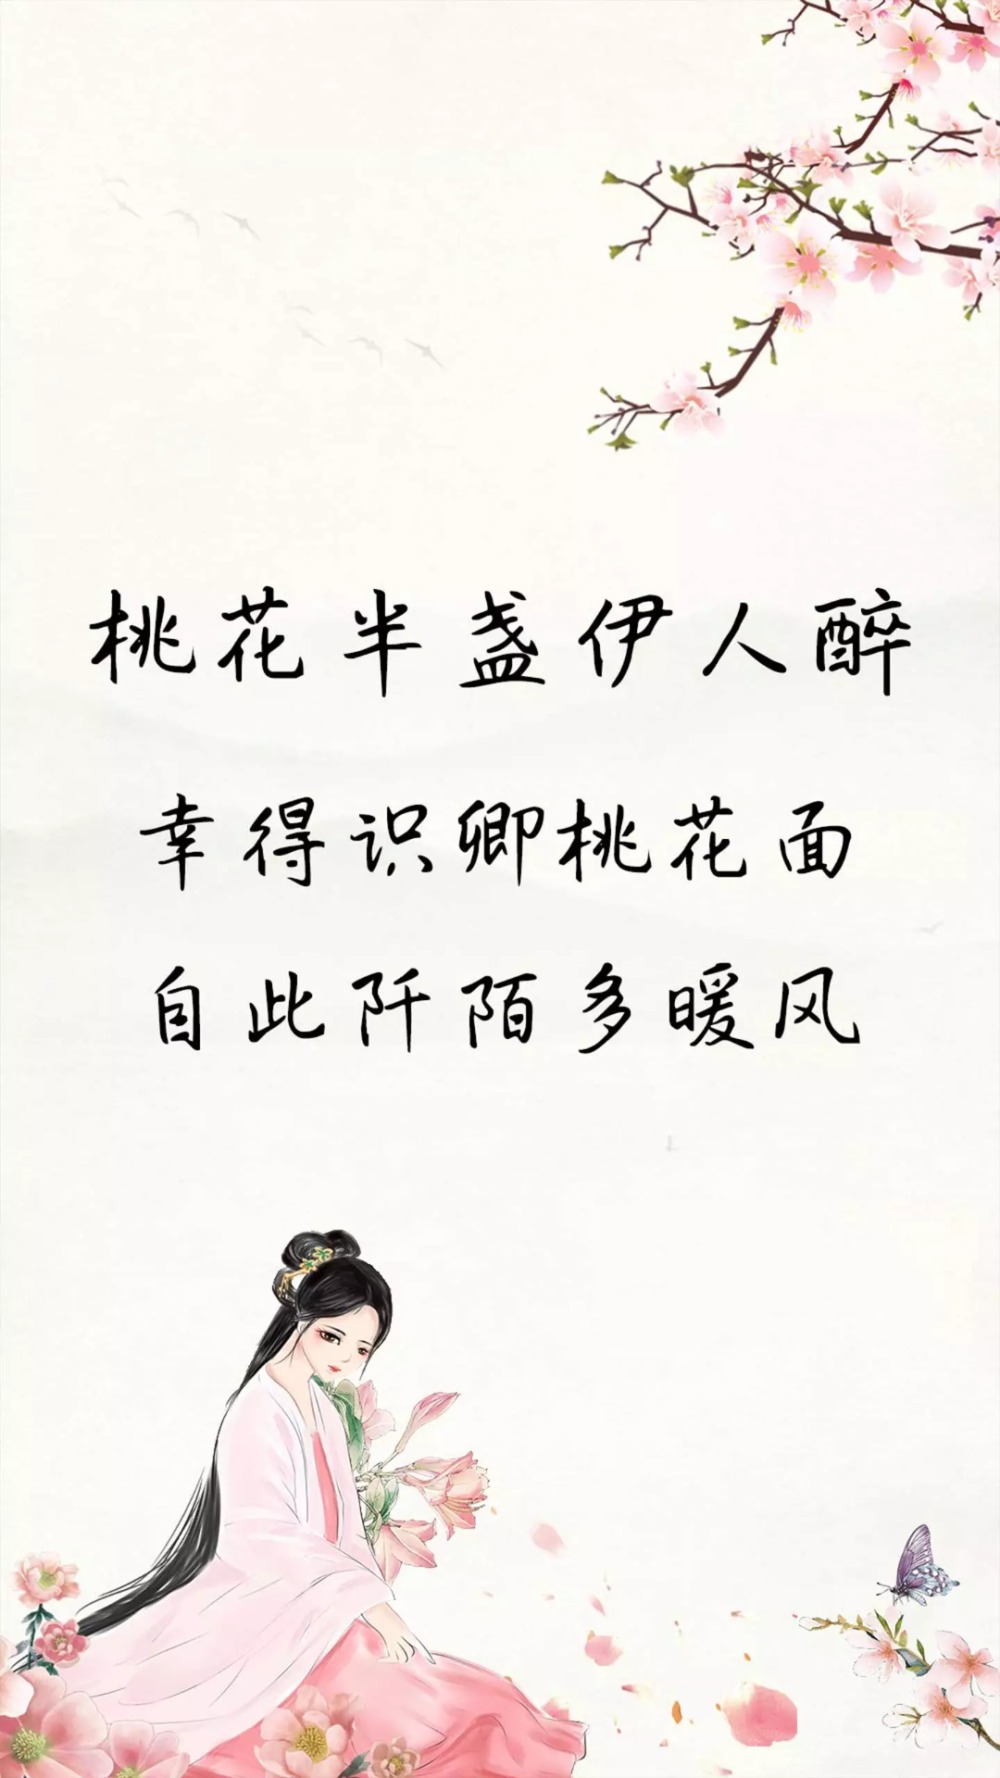 桃花半盏伊人醉
幸得识卿桃花面
自此阡陌多暖风